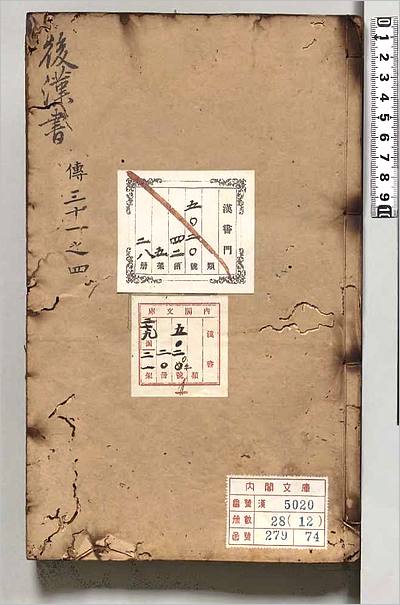 後漢書
傳三十一之四
漢書門
類
五〇二〇號
四二函
五架
二八册
內閣文庫
漢書
類
五〇二〇號
册
函
三一架
內閣文庫
番號 漢 5020
册數 28(12)
函號 279 74
0 1 2 3 4 5 6 7 8 9 10